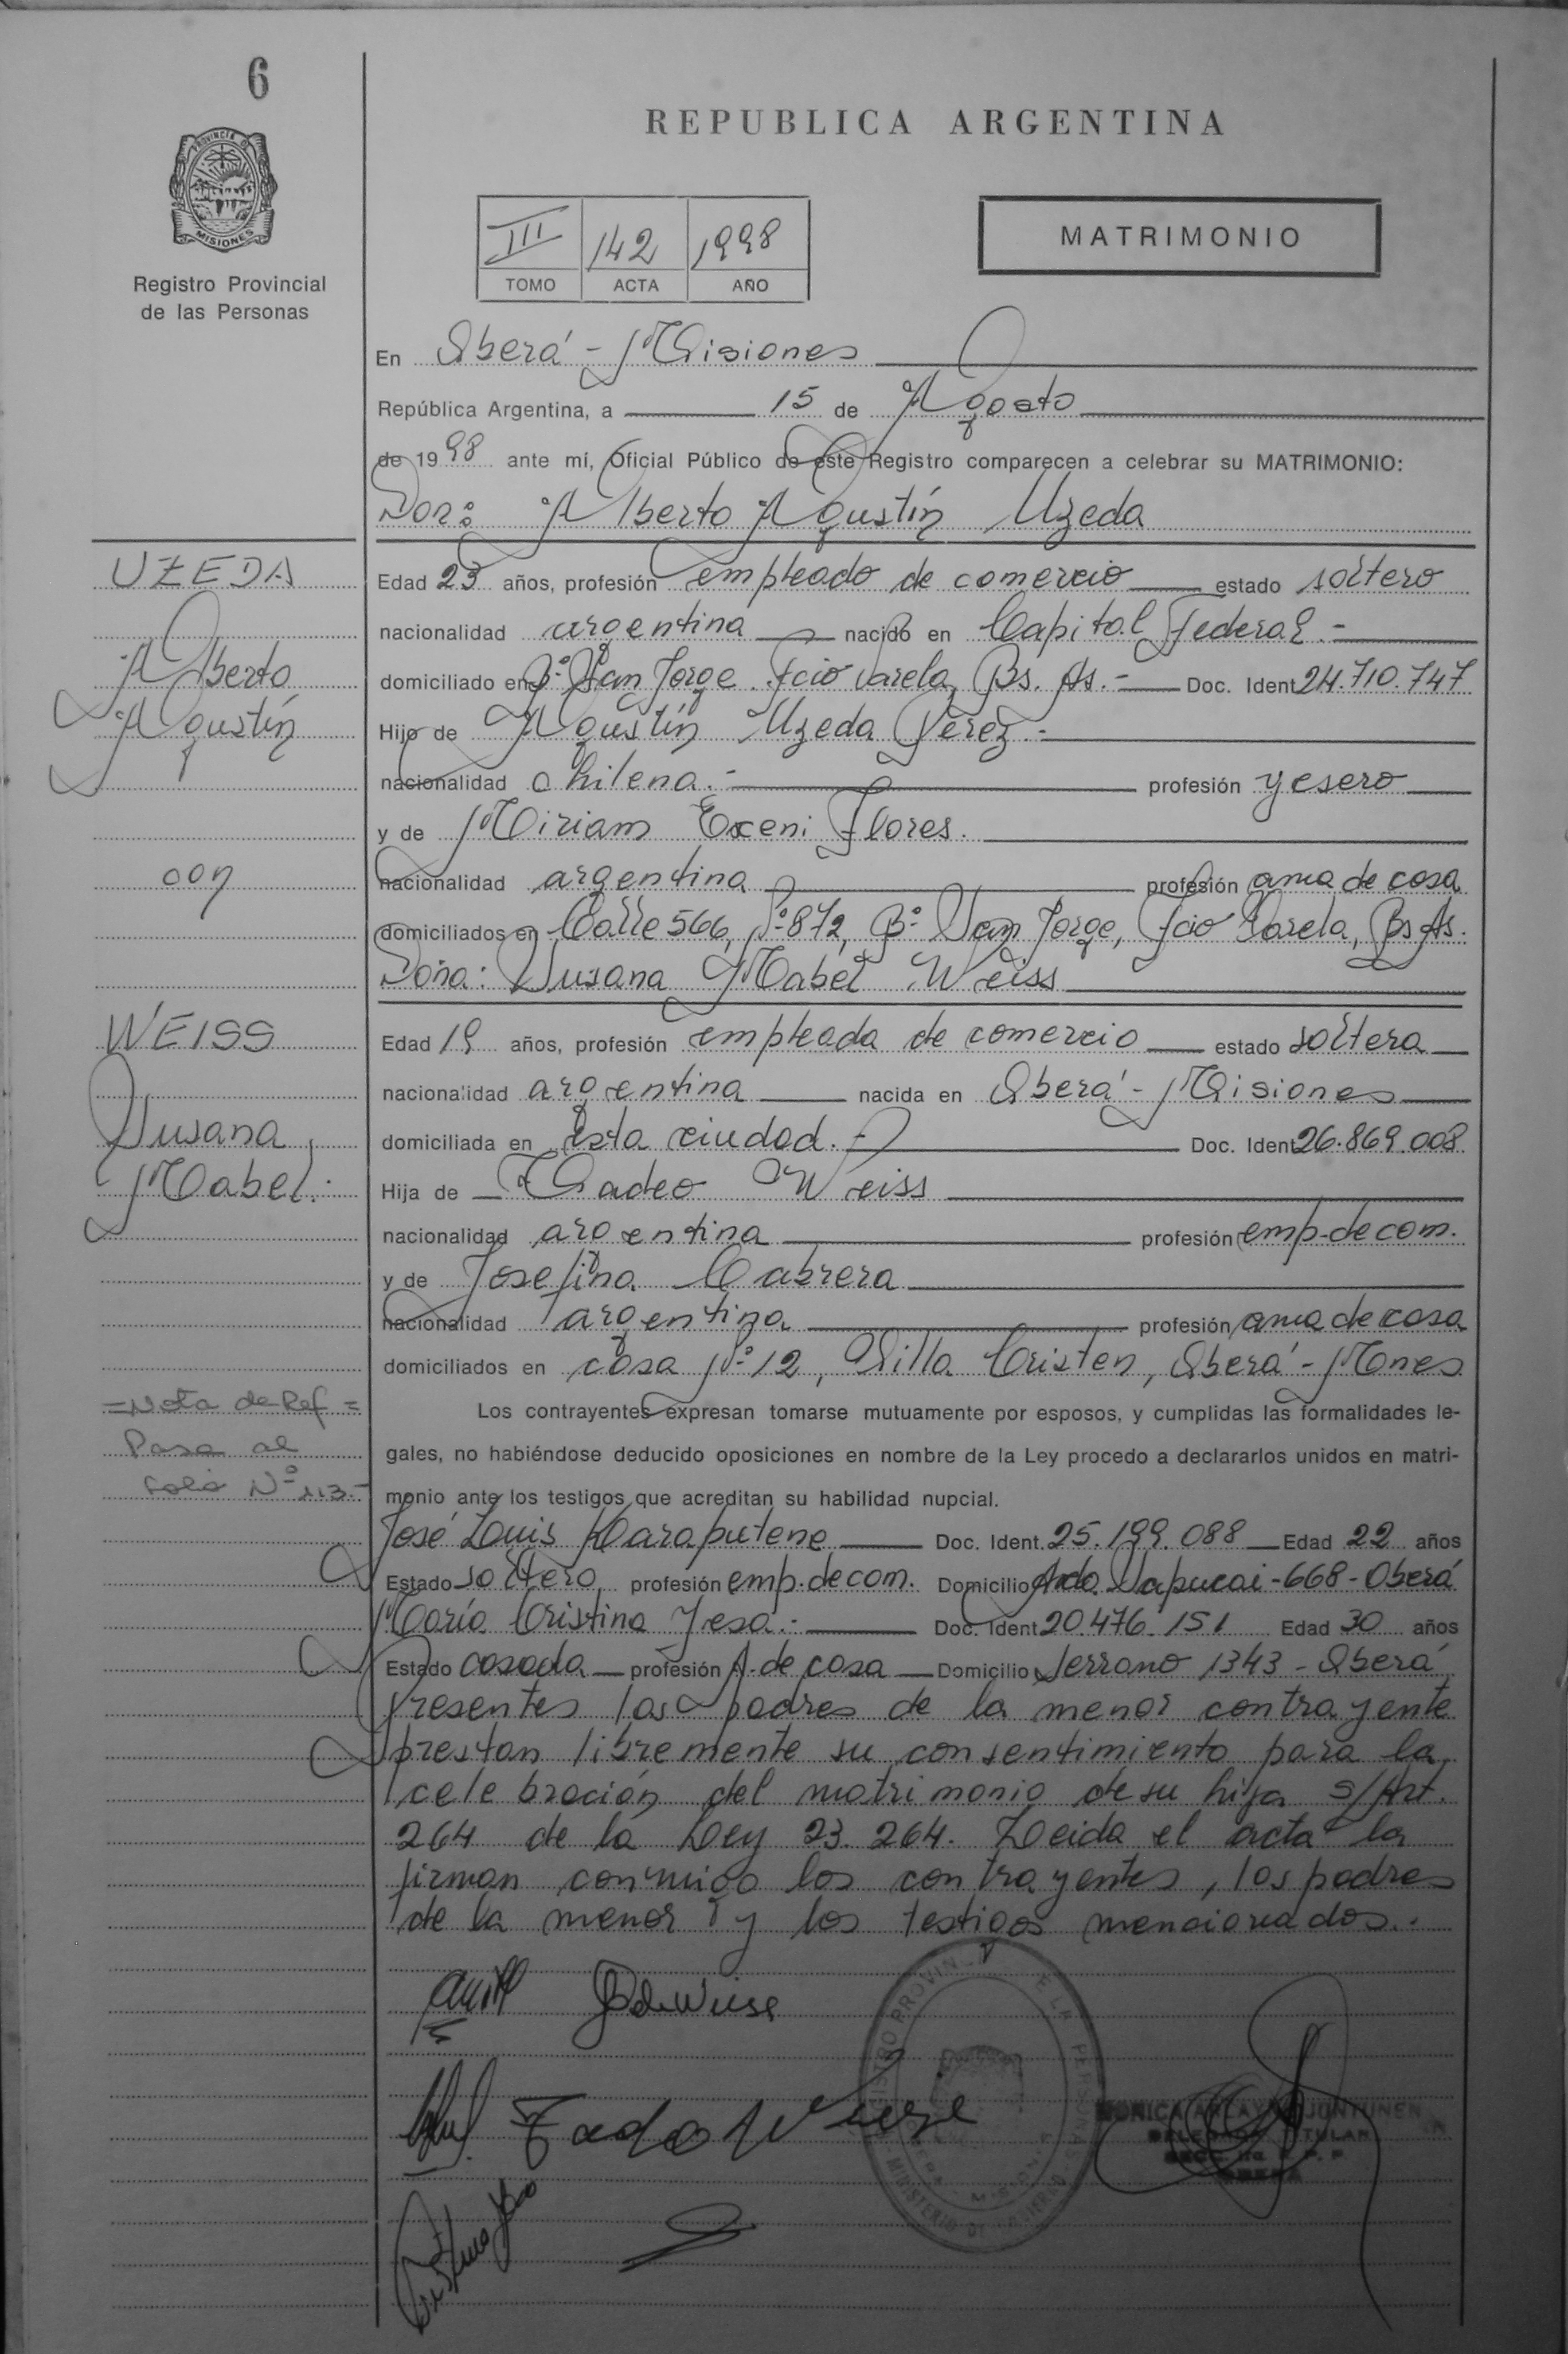 6
REPUBLICA ARGENTINA
PROVINCIA DE
MISIONES
Registro Provincial
de las Personas
III 142 1998
TOMO ACTA AÑO
MATRIMONIO
En Oberá - Misiones
República Argentina, a 15 de Agosto
de 1998 ante mí, Oficial Público de este Registro comparecen a celebrar su MATRIMONIO:
Don: Alberto Agustín Uzeda
UZEDA
Alberto
Agustín
con
WEISS
Susana
Mabel.-
=Nota de Ref=
Pasa al
folio Nº 113.-
Edad 23 años, profesión empleado de comercio estado soltero
nacionalidad argentina nacido en Capital Federal.-
domiciliado en Bº San Jorge Fcio Varela, Bs. As.- Doc. Ident 24.710.747
Hijo de Agustín Uzeda Pérez.-
nacionalidad chilena.- profesión yesero
y de Miriam Exeni Flores.
nacionalidad argentina profesión ama de casa
domiciliados en Calle 566, Nº 872, Bº San Jorge, Fcio Varela, Bs As.
Doña: Susana Mabel Weiss
Edad 19 años, profesión empleada de comercio estado soltera
nacionalidad argentina nacida en Oberá - Misiones
domiciliada en esta ciudad.- Doc. Ident 26.869.008
Hija de Tadeo Weiss
nacionalidad argentina profesión emp. de com.
y de Josefina Cabrera
nacionalidad argentina profesión ama de casa
domiciliados en casa Nº 12, Villa Cristen, Oberá - Mones
Los contrayentes expresan tomarse mutuamente por esposos, y cumplidas las formalidades le-
gales, no habiéndose deducido oposiciones en nombre de la Ley procedo a declararlos unidos en matri-
monio ante los testigos que acreditan su habilidad nupcial.
José Luis Karaputene Doc. Ident. 25.199.088 Edad 22 años
Estado soltero profesión emp. de com. Domicilio Avda. Sapucai - 668 - Oberá
María Cristina Yesa.- Doc. Ident 20.476.151 Edad 30 años
Estado casada profesión A. de casa Domicilio Serrano 1343 - Oberá
Presentes los padres de la menor contrayente
prestan libremente su consentimiento para la
celebración del matrimonio de su hija s/Art.
264 de la Ley 23.264. Leida el acta la
firman conmigo los contrayentes, los padres
de la menor y los testigos mencionados.-
Tadeo Weise
MONICA JONTUNEN
DELEGADA TITULAR
OBERA